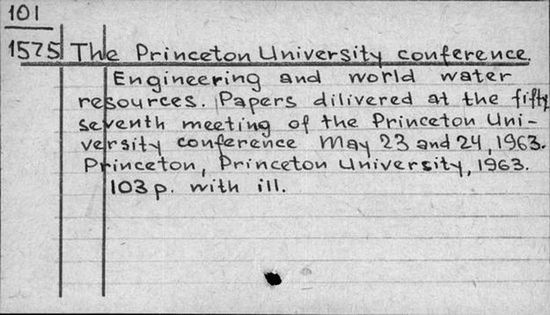 101
1575 The Princeton University conference.
Engineering and world water
resources. Papers dilivered at the fifty
seventh meeting of the Princeton Uni-
versity conference May 23 and 24, 1963.
Princeton, Princeton University, 1963.
103 p. with ill.